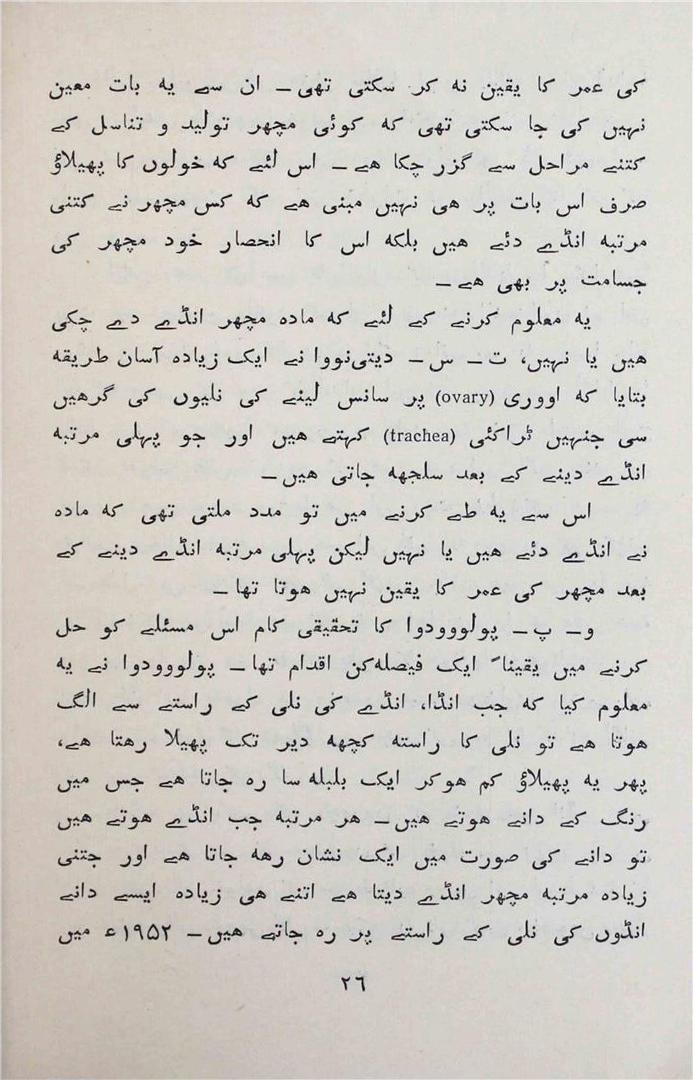 کی عمر کا یقین نہ کر سکتی تھی ـ ان سے یہ بات معین
نہیں کی جا سکتی تھی کہ کوئی مچھر تولید و تناسل کے
کتنے مراحل سے گزر چکا ھے ـ اس لئے کہ خولوں کا پھیلاؤ
صرف اس بات پر ھی نہیں مبنی ھے کہ کس مچھر نے کتنی
مرتبہ انڈے دئے ھیں بلکہ اس کا انحصار خود مچھر کی
جسامت پر بھی ھے ـ
یہ معلوم کرنے کے لئے کہ مادہ مچھر انڈے دے چکی
ھیں یا نہیں، ت ـ س ـ دیتی‌نووا نے ایک زیادہ آسان طریقہ
بتایا کہ اووری (ovary) پر سانس لینے کی نلیوں کی گرھیں
سی جنہیں ٹراکئی (trachea) کہتے ھیں اور جو پہلی مرتبہ
انڈے دینے کے بعد سلجھہ جاتی ھیں ـ
اس سے یہ طے کرنے میں تو مدد ملتی تھی کہ مادہ
نے انڈے دئے ھیں یا نہیں لیکن پہلی مرتبہ انڈے دینے کے
بعد مچھر کی عمر کا یقین نہیں ھوتا تھا ـ
و ـ پ ـ پولوووودوا کا تحقیقی کام اس مسئلے کو حل
کرنے میں یقیناً ایک فیصلہ‌کن اقدام تھا ـ پولوووودوا نے یہ
معلوم کیا کہ جب انڈا، انڈے کی نلی کے راستے سے الگ
ھوتا ھے تو نلی کا راستہ کچھہ دیر تک پھیلا رھتا ھے،
پھر یہ پھیلاؤ کم ھوکر ایک بلبلہ سا رہ جاتا ھے جس میں
رنگ کے دانے ھوتے ھیں ـ ھر مرتبہ جب انڈے ھوتے ھیں
تو دانے کی صورت میں ایک نشان رھہ جاتا ھے اور جتنی
زیادہ مرتبہ مچھر انڈے دیتا ھے اتنے ھی زیادہ ایسے دانے
انڈوں کی نلی کے راستے پر رہ جاتے ھیں ـ ۱۹۵۲ء میں
۲۶